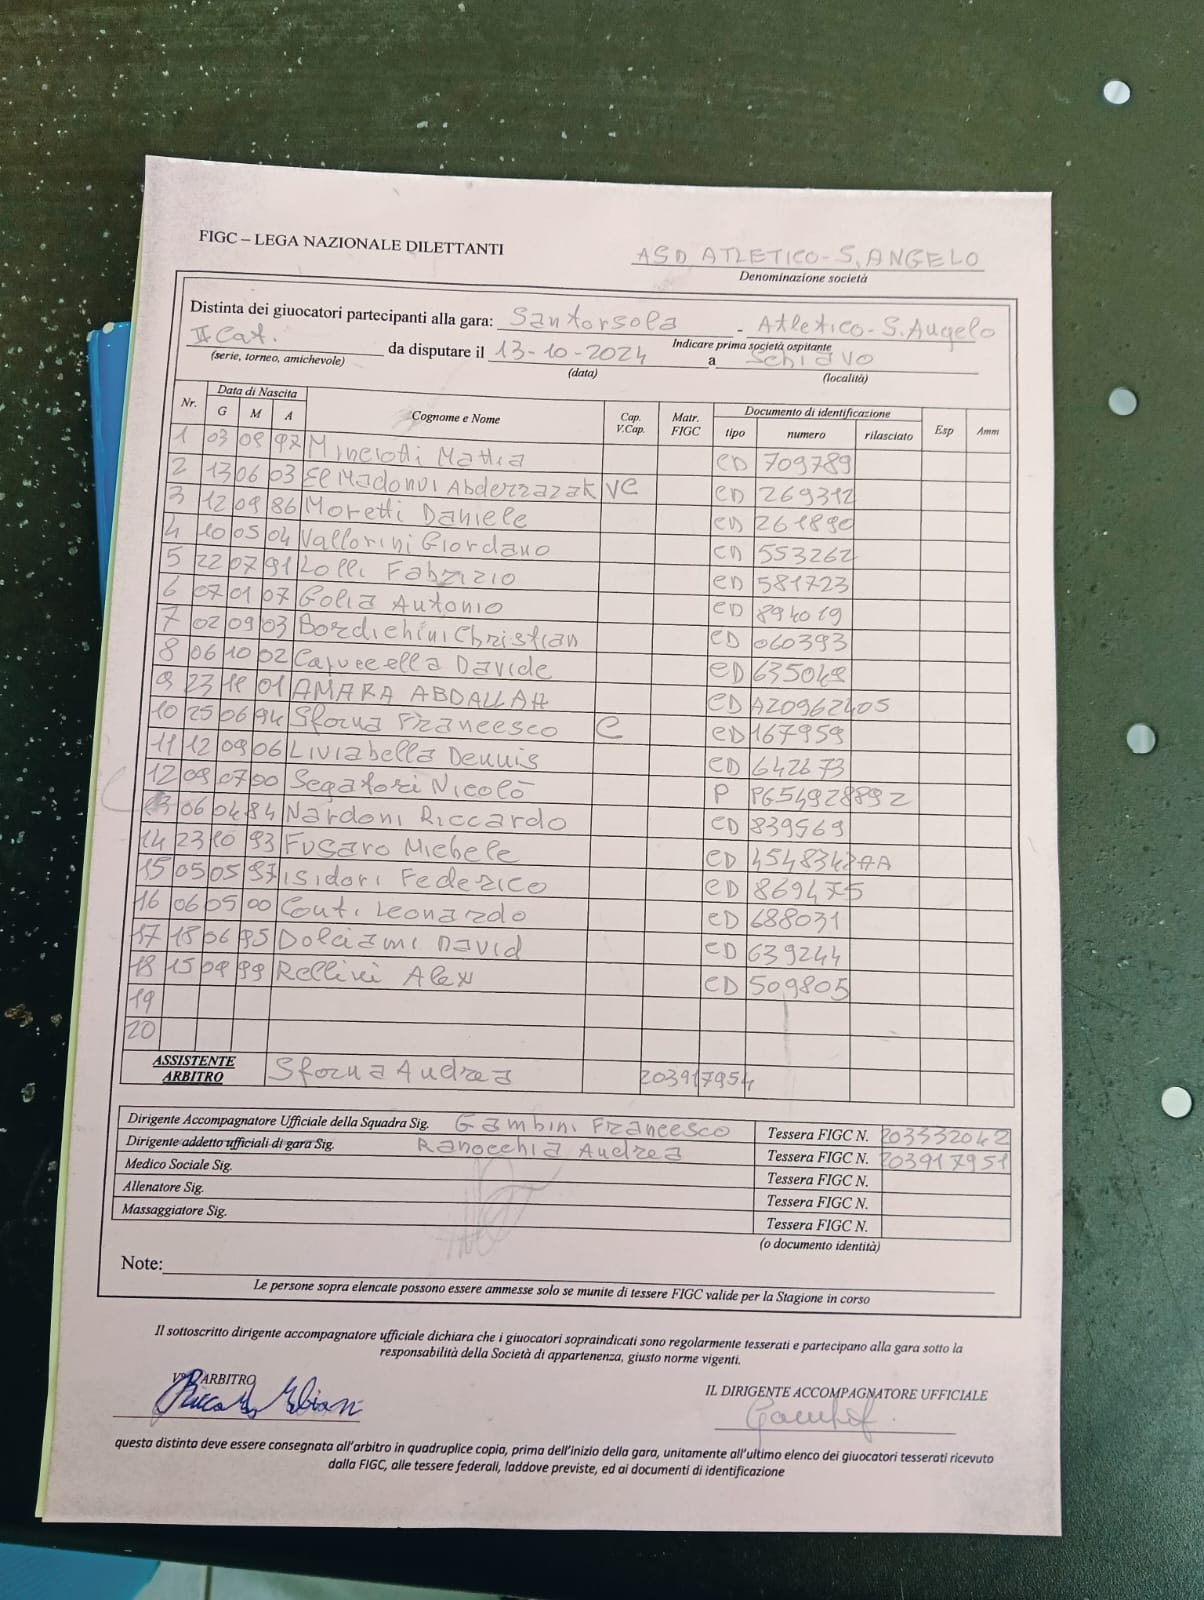 FIGC – LEGA NAZIONALE DILETTANTI
ASD ATLETICO-S.ANGELO
Denominazione società
Distinta dei giuocatori partecipanti alla gara: Santorsola - Atletico-S.Angelo
Indicare prima società ospitante
II Cat. da disputare il 13-10-2024 a Schiavo
(serie, torneo, amichevole) (data) (località)
Nr. Data di Nascita Cognome e Nome Cap. V.Cap. Matr. FIGC Documento di identificazione Esp Amm
G M A tipo numero rilasciato
1 03 08 97 Minciotti Mattia CD 709789
2 13 06 03 El Madonui Abderrazak VC CD 269312
3 12 09 86 Moretti Daniele CD 261890
4 10 05 04 Vallorini Giordano CD 553262
5 22 07 91 Lolli Fabrizio CD 581723
6 07 01 07 Golia Antonio CD 894019
7 02 09 03 Bordichini Christian CD 060393
8 06 10 02 Capuccella Davide CD 635048
9 23 11 01 AMARA ABDALLAH CD AZ0962405
10 25 06 94 Sforna Francesco C CD 167959
11 12 09 06 Liviabella Dennis CD 642673
12 09 07 00 Segatori Nicolò P PG54928892
13 06 04 84 Nardoni Riccardo CD 839569
14 23 10 93 Fusaro Michele CD 4548342AA
15 05 05 97 Isidori Federico CD 869475
16 06 05 00 Conti Leonardo CD 688031
17 18 06 95 Dolciami David CD 639244
18 15 09 99 Rellini Alex CD 509805
19
20
ASSISTENTE ARBITRO Sforna Andrea 203917954
Dirigente Accompagnatore Ufficiale della Squadra Sig. Gambini Francesco Tessera FIGC N. 203332042
Dirigente addetto ufficiali di gara Sig. Ranocchia Andrea Tessera FIGC N. 203917951
Medico Sociale Sig. Tessera FIGC N.
Allenatore Sig. Tessera FIGC N.
Massaggiatore Sig. Tessera FIGC N.
(o documento identità)
Note:
Le persone sopra elencate possono essere ammesse solo se munite di tessere FIGC valide per la Stagione in corso
Il sottoscritto dirigente accompagnatore ufficiale dichiara che i giuocatori sopraindicati sono regolarmente tesserati e partecipano alla gara sotto la
responsabilità della Società di appartenenza, giusto norme vigenti.
ARBITRO
IL DIRIGENTE ACCOMPAGNATORE UFFICIALE
questa distinta deve essere consegnata all'arbitro in quadruplice copia, prima dell'inizio della gara, unitamente all'ultimo elenco dei giuocatori tesserati ricevuto
dalla FIGC, alle tessere federali, laddove previste, ed ai documenti di identificazione